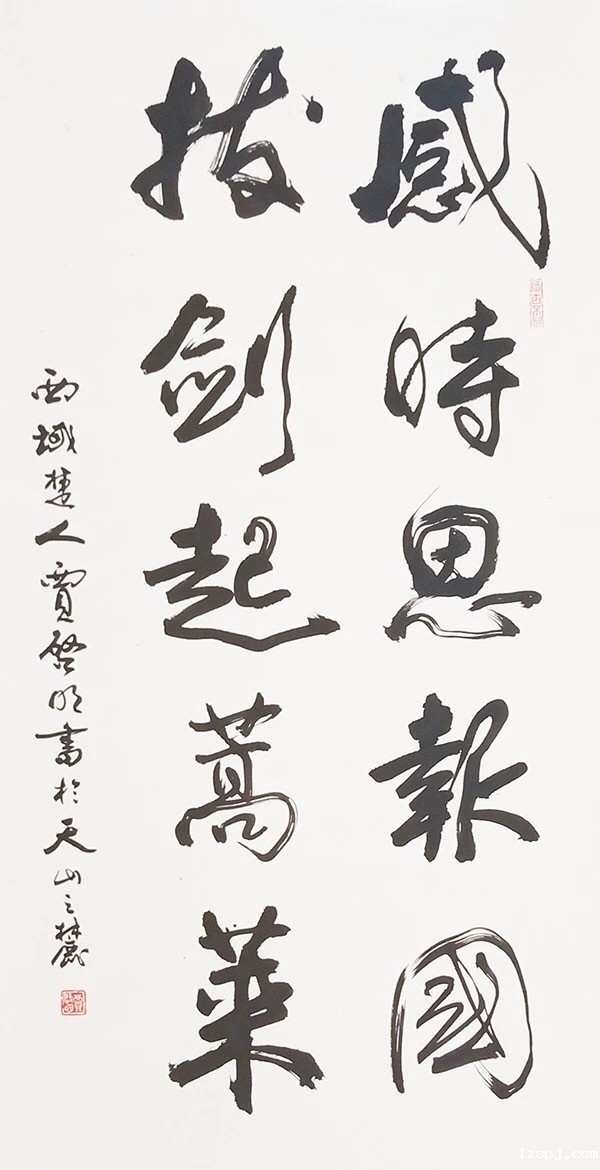 感時思報國
拔劍起蒿萊
西域楚人賈啓明書於天山之麓
lzspj.com